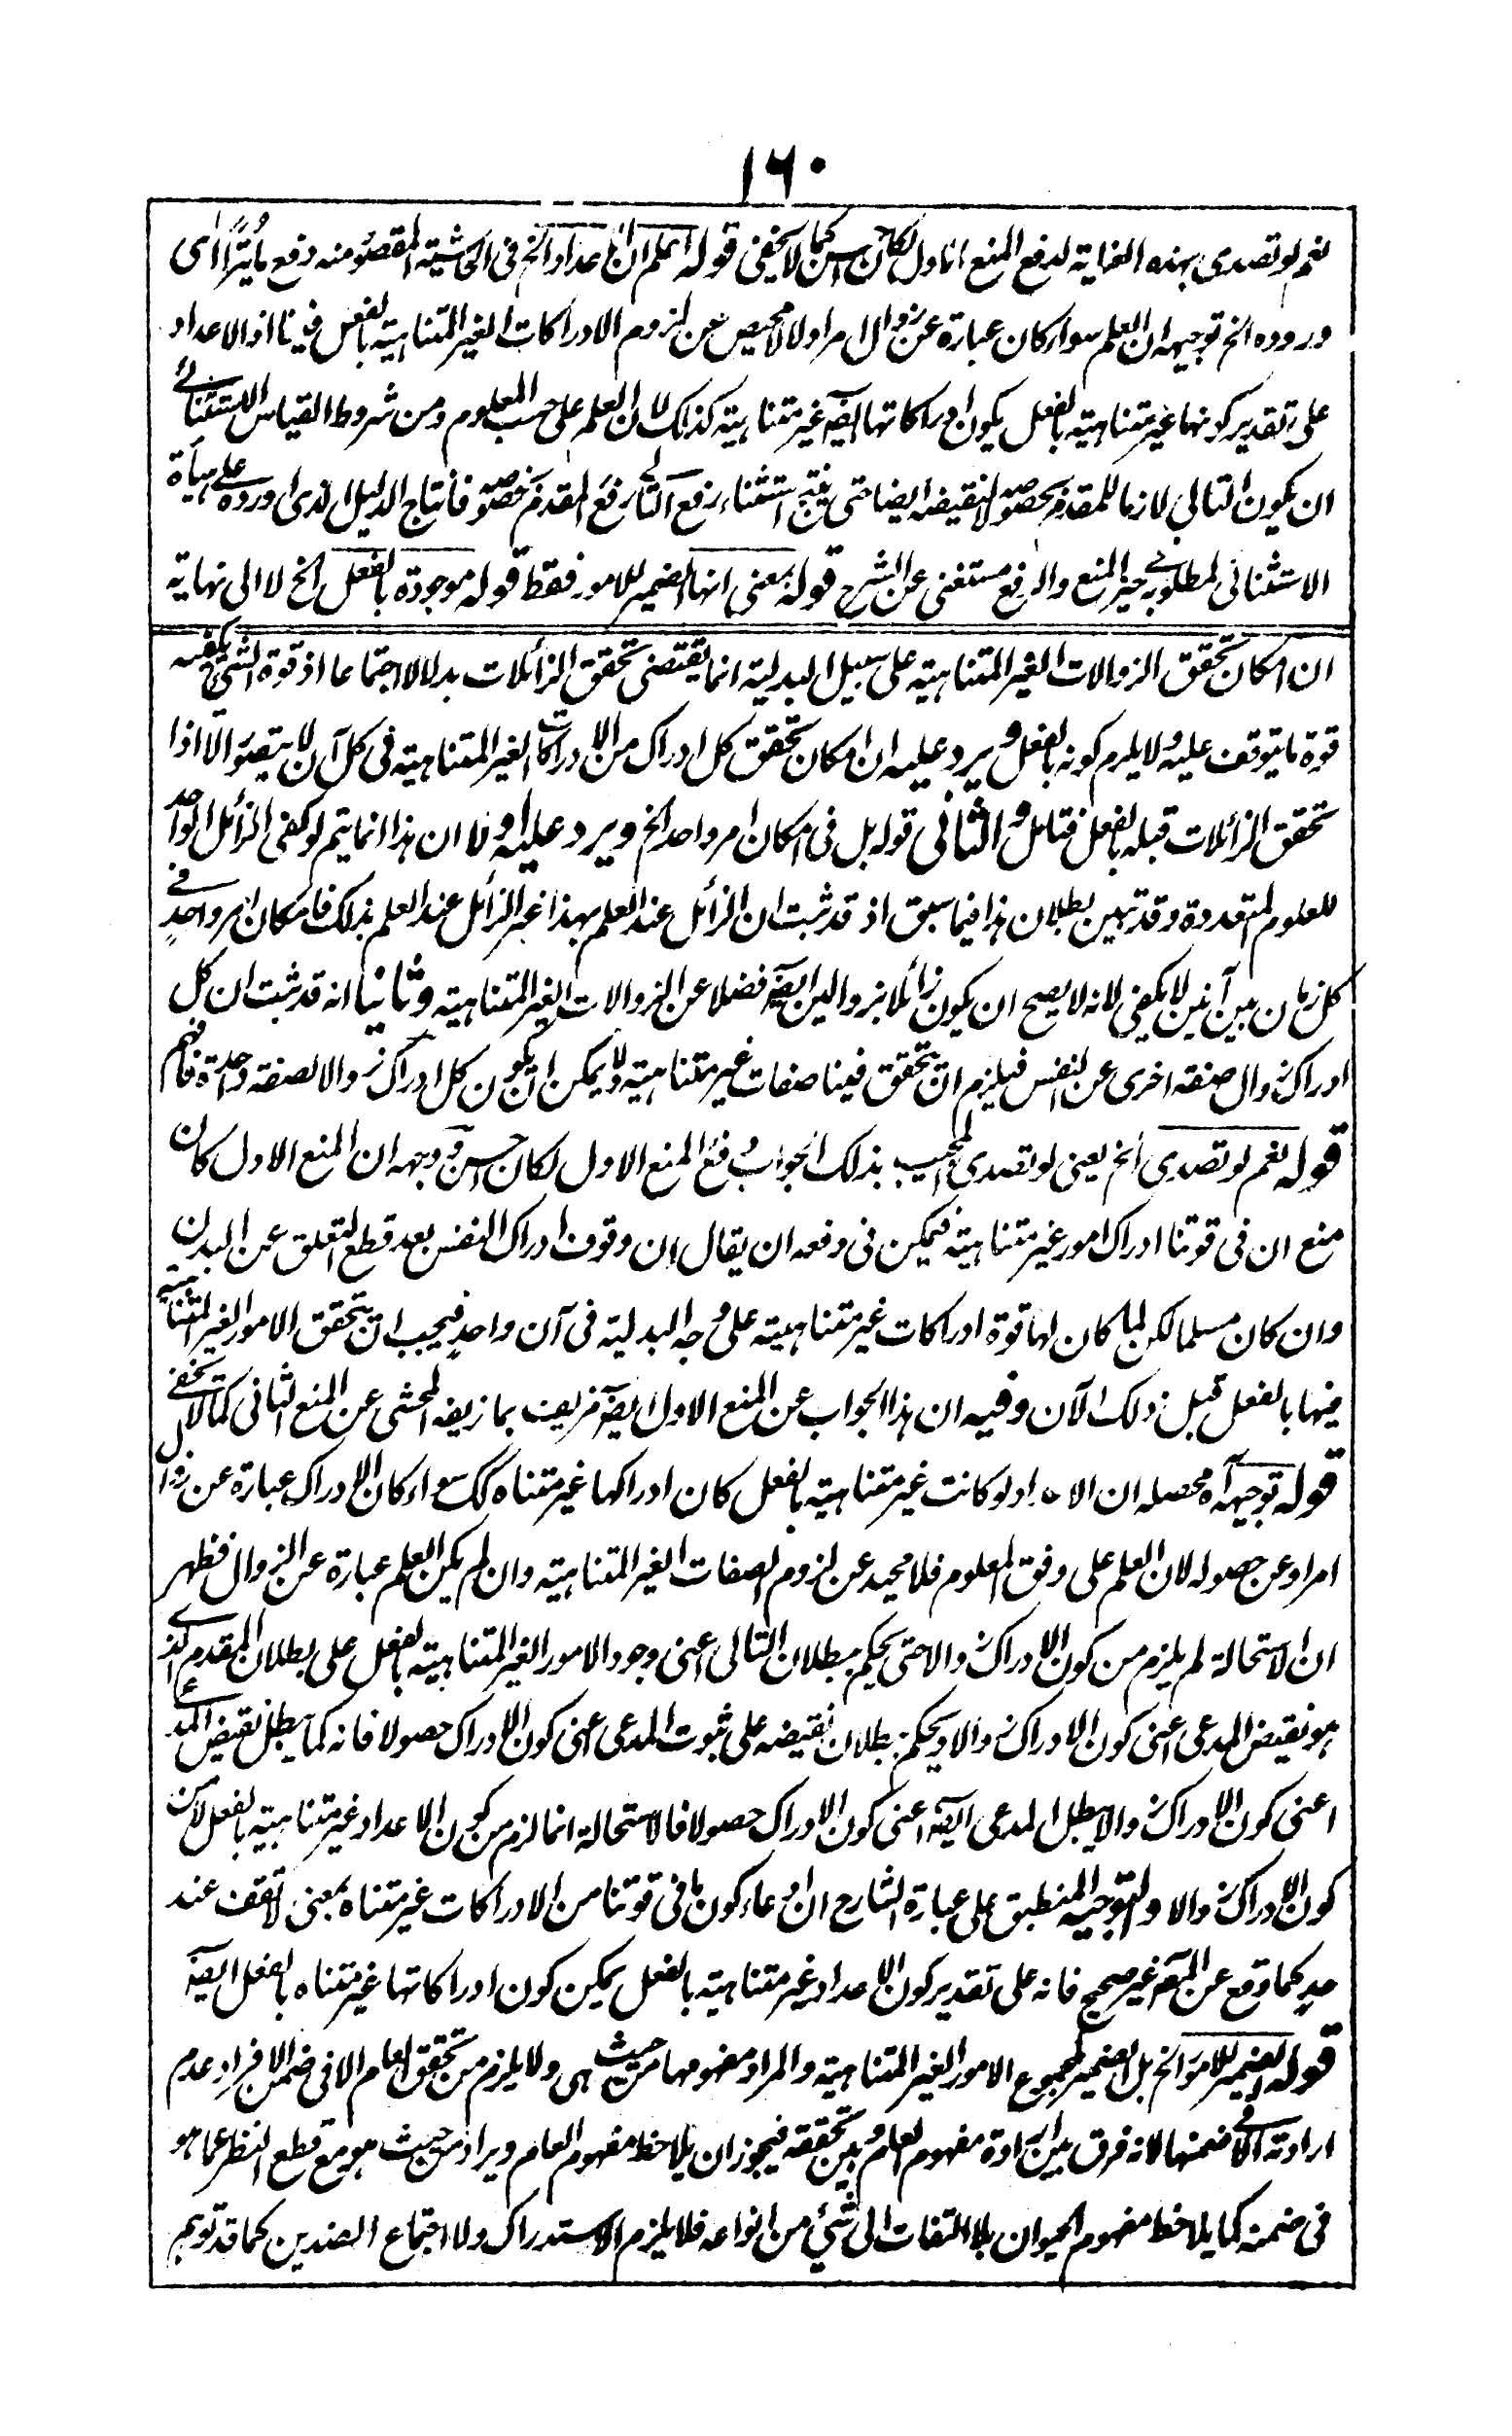 ١٦٠
نعم لو تصدى بهذه العناية لدفع المنع الاول لكان احسن كما لا يخفى قوله اعلم ان الاعداد الخ فى الحاشية المقصود منه دفع ما يترااى
وروده الخ توجيهه ان العلم سواء كان عبارة عن زوال امر او لا لا محيص عن لزوم الادراكات الغير المتناهية بالفعل فينا اذ الاعداد
على تقدير كونها غير متناهية بالفعل يكون ادراكاتها ايضا غير متناهية كذلك لان العلم على حسب المعلوم ومن شروط القياس الاستثنائى
ان يكون التالى لازما للمقدم بخصوصه لا لنقيضه ايضا حتى ينتج استثناء رفع التالى رفع المقدم بخصوصه فانتاج الدليل الذى اورده على هياة
الاستثنائى لمطلوبه فى حيز المنع والدفع مستغنى عن الشرح قوله بمعنى انها الضمير للامور فقط قوله موجودة بالفعل الخ لا الى نهاية
ان امكان تحقق الزوالات الغير المتناهية على سبيل البدلية انما يقتضى تحقق الزائلات بدلا لا اجتماعا اذ قوة الشئ يكفيه
قوة ما يتوقف عليه ولا يلزم كونه بالفعل ويرد عليه ان امكان تحقق كل ادراك من الادراكات الغير المتناهية فى كل آن لا يتصور الا اذا
تحقق الزائلات قبله بالفعل فتامل والثانى قوله بل فى امكان امر واحد الخ ويرد عليه اولا ان هذا انما يتم لو كفى الزائل الواحد
للعلوم المتعددة وقد تبين بطلان هذا فيما سبق اذ قد ثبت ان الزائل عند العلم بهذا غير الزائل عند العلم بذلك فامكان امر واحد فى
كل زمان بين آنين لا يكفى لانه لا يصح ان يكون زائلا بزوالين ايضا فضلا عن الزوالات الغير المتناهية وثانيا انه قد ثبت ان كل
ادراك زوال صفة اخرى عن النفس فيلزم ان يتحقق فينا صفات غير متناهية ولا يمكن ان يكون كل ادراك زوالا لصفة واحدة فافهم
قوله نعم لو تصدى الخ يعنى لو تصدى المجيب بذلك الجواب دفع المنع الاول لكان احسن ووجهه ان المنع الاول كان
منع ان فى قوتنا ادراك امور غير متناهية فيمكن فى دفعه ان يقال ان وقوف ادراك النفس بعد قطع التعلق عن البدن
وان كان مسلما لكن لما كان لها قوة ادراكات غير متناهية على وجه البدلية فى آن واحد فيجب ان يتحقق الامور الغير المتناهية
فيها بالفعل قبل ذلك الآن وفيه ان هذا الجواب عن المنع الاول ايضا مزيف بما زيفه المحشى عن المنع الثانى كما لا يخفى
قوله توجيهه آه محصله ان الاعداد لو كانت غير متناهية بالفعل كان ادراكها غير متناه كك سواء كان الادراك عبارة عن زوال
امر او عن حصوله لان العلم على وفق المعلوم فلا محيد عن لزوم الصفات الغير المتناهية وان لم يكن العلم عبارة عن الزوال فظهر
ان الاستحالة لم يلزم من كون الادراك زوالا حتى يحكم ببطلان التالى اعنى وجود الامور الغير المتناهية بالفعل على بطلان المقدم الذى
هو نقيض المدعى اعنى كون الادراك زوالا ويحكم ببطلان نقيضه على ثبوت المدعى اعنى كون الادراك حصولا فانه كما يبطل نقيض المدعى
اعنى كون الادراك زوالا يبطل المدعى ايضا اعنى كون الادراك حصولا فالاستحالة انما لزم من كون الاعداد غير متناهية بالفعل لا من
كون الادراك زوالا والتوجيه المنطبق على عبارة الشارح ان ادعاء كون ما فى قوتنا من الادراكات غير متناه بمعنى لا تقف عند
حد كما وقع عن المص غير صحيح فانه على تقدير كون الاعداد غير متناهية بالفعل يمكن كون ادراكاتها غير متناه بالفعل ايضا
قوله الضمير للامور الخ بل الضمير لمجموع الامور الغير المتناهية والمراد مفهومها من حيث هى ولا يلزم من تحقق العام الا فى ضمن الافراد عدم
ارادته الا فى ضمنها لانه فرق بين ارادة مفهوم العام وبين تحققه فيجوز ان يلاحظ مفهوم العام ويراد من حيث هو مع قطع النظر عما هو
فى ضمنه كما يلاحظ مفهوم الحيوان بلا التفات الى شئ من انواعه فلا يلزم الاستدراك ولا اجتماع الضدين كما قد توهم